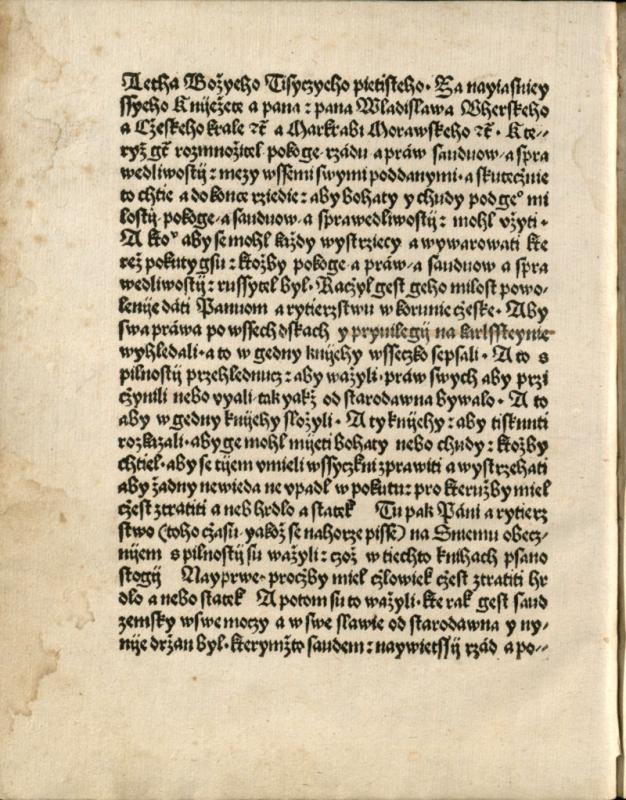 Letha Božyeho Tisyczyeho pietisteho · Za nayiasniey
ssyeho Kniježete a pana : pana Wladislawa Vherskeho
a Cžeskeho krale ꝛc̄ a Markrabi Morawskeho ꝛc̄ · Kte⸗
ryž gt̄ rozmnožitel pokoge rzádu a práw saudnow a spra
wedliwostij : mezy wssemi swymi poddanymi · a skutecžnie
to chtie a do konce rziedie : aby bohaty y chudy pod geᵒ mi
lostij pokoge a saudnow a sprawedliwostij : mohl vžyti ·
A ktoᵛ aby se mohl každy wystrziecy a wywarowati kte
rež pokuty gsu : ktožby pokoge a práw a saudnow a spra
wedliwostij : russytel byl · Racžyl gest geho milost powo⸗
lenije dáti Panuom a rytierzstwu w korunie cžeske · Aby
swa práwa po wssech dskach y prywilegij na karlssteynie
wyhledali · a to w gedny knijehy wsseczko sepsali · A to s
pilnostij przehlednucz : aby wažyli · práw swych aby przi
cžynili nebo vyali tak yakž od starodawna bywalo · A to
aby w gedny knijehy složyli · A ty knijehy : aby tisknuti
rozkázali · aby ge mohl mijeti bohaty nebo chudy : ktožby
chtiel · aby se tijem vmieli wssyczkni zprawiti a wystrzehati
aby žadny newieda ne vpadl w pokutu : pro kteružby miel
cžest ztratiti a neb hrdlo a statek Tu pak Páni a rytierz
stwo (toho cžasu yakož se nahorze piss̄e) na Sniemu obecz⸗
nijem s pilnostij su wažyli : czož w tiechto knihach psano
stogij Nayprwe · procžby miel cžlowiek cžest ztratiti hr
dlo a nebo statek A potom su to wažyli · kterak gest saud
zemsky w swe moczy a w swe slawie od starodawna y ny⸗
nije držan byl · kterymžto saudem : naywietssij rzád a po⸗